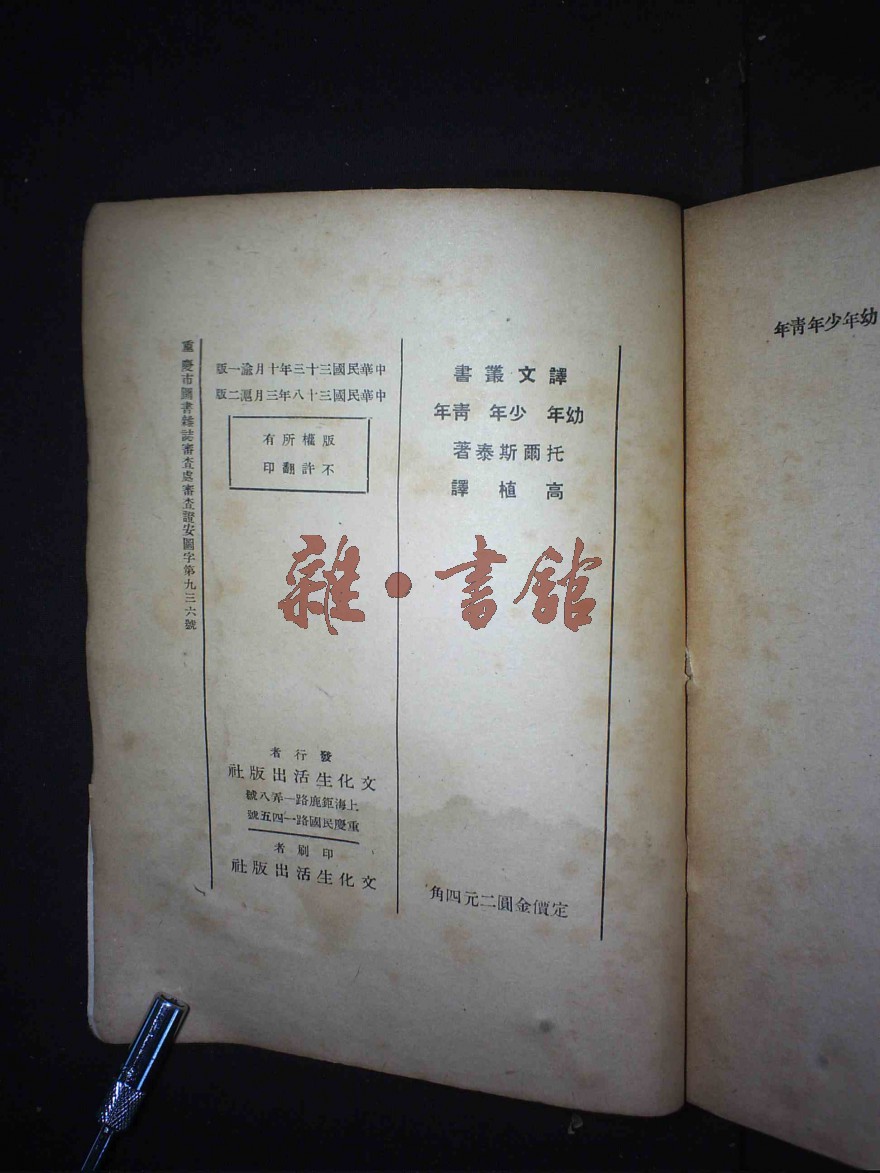 幼年少年青年
譯文叢書
幼年 少年 青年
托爾斯泰著
高植譯
定價金圓二元四角
中華民國三十三年十月渝一版
中華民國三十八年三月滬二版
版權所有
不許翻印
發行者
文化生活出版社
上海鉅鹿路一弄八號
重慶民國路一四五號
印刷者
文化生活出版社
重慶市圖書雜誌審查處審查證安圖字第九三六號
雜·書館